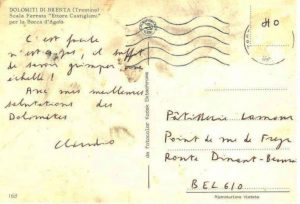 DOLOMITI DI BRENTA (Trentino)
Scala Ferrata "Ettore Castiglioni"
per la Bocca d'Agola
C'est facile
n'est ce pas, il suffit
de savoir grimper une
échelle !
Avec mes meilleures
salutations des
Dolomites
Claudio
da fotocolor Kodak Ektachrome
Pâtisserie Lamour
Point de m de
Route Dinant
BELGIO
Riproduzione vietata